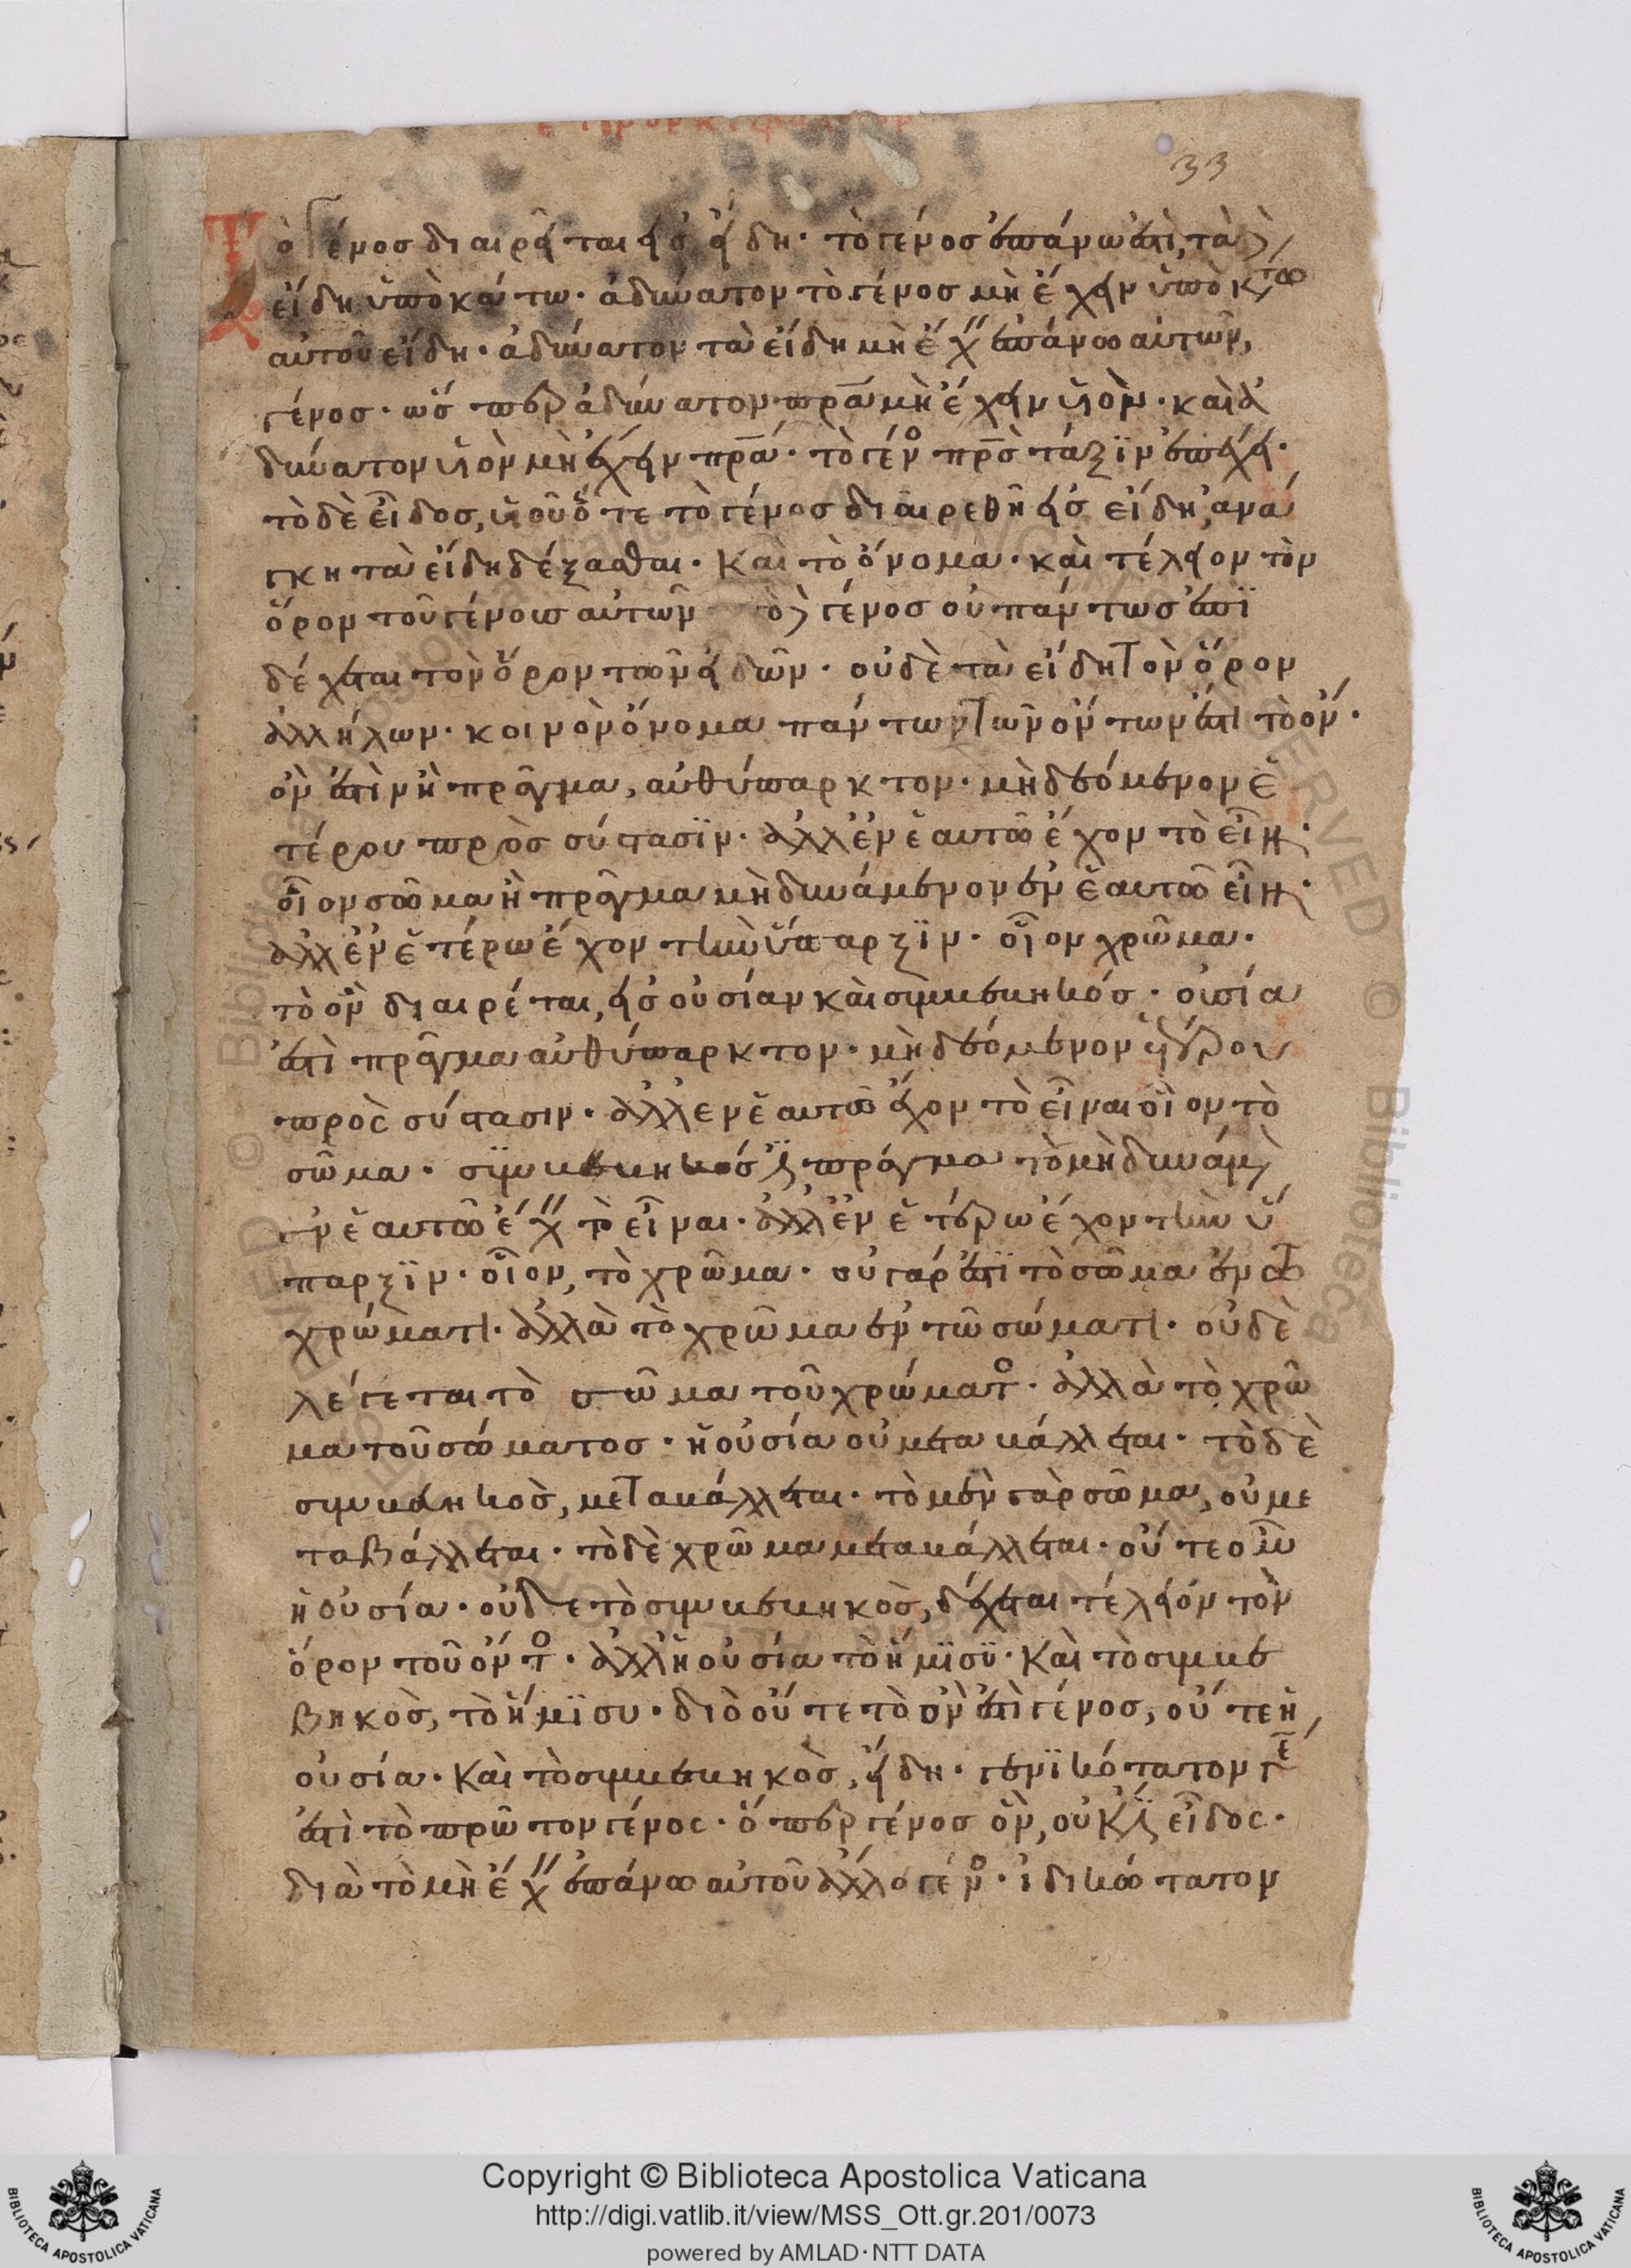 33
Τὸ γένος διαιρεῖται εἰς εἴδη· τὸ γένος ἐπάνω ἐστὶ, τὰ δὲ
εἴδη ὑποκάτω· ἀδύνατον τὸ γένος μὴ ἔχειν ὑποκάτω
αὐτοῦ εἴδη· ἀδύνατον τὰ εἴδη μὴ ἔχειν ἐπάνω αὐτῶν,
γένος· ὥσπερ ἀδύνατον πρα μὴ ἔχειν υἱὸν· καὶ ἀ
δύνατον υἱὸν μὴ ἔχειν πρα· τὸ γένος πρς τάξιν ἐπέχει·
τὸ δὲ εἶδος, υἱοῦ ὅτε τὸ γένος διαιρεθῆ εἰς εἴδη, ανά
γκη τὰ εἴδη δέξασθαι· καὶ τὸ ὄνομα· καὶ τέλειον τὸν
ὅρον τοῦ γένους αὐτῶν τὸ δὲ γένος οὐ πάντως ἐπι
δέχεται τὸν ὅρον τῶν εἰδῶν· οὐδὲ τὰ εἴδη τὸν ὅρον
ἀλλήλων· κοινὸν ὄνομα πάντων τῶν ὄντων ἐστὶ τὸ ὄν·
ὄν ἐστὶν ἢ πρᾶγμα, αὐθύπαρκτον· μὴ δεόμενον ἑ
τέρου πρὸς σύστασιν· ἀλλ ἐν ἑαυτῶ ἔχον τὸ εἶναι·
οἷον σῶμα ἢ πρᾶγμα μὴ δυνάμενον ἐν ἑαυτῶ εἶναι·
ἀλλ ἐν ἑτέρω ἔχον τὴν ὕπαρξιν· οἷον χρῶμα·
τὸ ὂν διαιρέται, εἰς οὐσίαν καὶ συμβεβηκός· οὐσία
ἐστὶ πρᾶγμα αὐθύπαρκτον· μὴ δεόμενον ἑτέρου
πρὸς σύστασιν· ἀλλ εν ἑαυτῶ ἔχον τὸ εἶναι οἷον τὸ
σῶμα· συμβεβηκός ἐστι πράγμα τὸ μὴ δυνάμενον
ἐν ἑαυτῶ ἔχειν τὸ εἶναι· ἀλλ ἐν ἑτέρω ἔχον τὴν ὕ
παρξιν· οἷον, τὸ χρῶμα· οὐ γάρ ἐστι τὸ σῶμα ἐν τῶ
χρώματι· ἀλλὰ τὸ χρῶμα ἐν τῶ σώματι· οὐδὲ
λέγεται τὸ σῶμα τοῦ χρώματος· ἀλλὰ τὸ χρῶ
μα τοῦ σώματος· ἡ οὐσία οὐ μεταβάλλεται· τὸ δὲ
συμβεβηκὸς, μεταβάλλεται· τὸ μὲν γὰρ σῶμα, οὐ με
ταβάλλεται· τὸ δὲ χρῶμα μεταβάλλεται· οὔτε οὖν
ἡ οὐσία· οὐδὲ τὸ συμβεβηκὸς, δέχεται τέλειόν τὸν
ὅρον τοῦ ὄντος· ἀλλ ἡ οὐσία τὸ ἥμισυ· καὶ τὸ συμβε
βηκὸς, τὸ ἥμισυ· διὸ οὔτε τὸ ὄν ἐστὶ γένος, οὔτε ἡ
οὐσία· καὶ τὸ συμβεβηκὸς, εἴδη· γενικότατον γε
ἐστὶ τὸ πρῶτον γένος· ὅπερ γένος ὂν, οὐκ ἔστι εἶδος·
διὰ τὸ μὴ ἔχειν ἐπάνω αὐτοῦ ἄλλο γένος· ἰδικώτατον
Copyright © Biblioteca Apostolica Vaticana
http://digi.vatlib.it/view/MSS_Ott.gr.201/0073
powered by AMLAD·NTT DATA